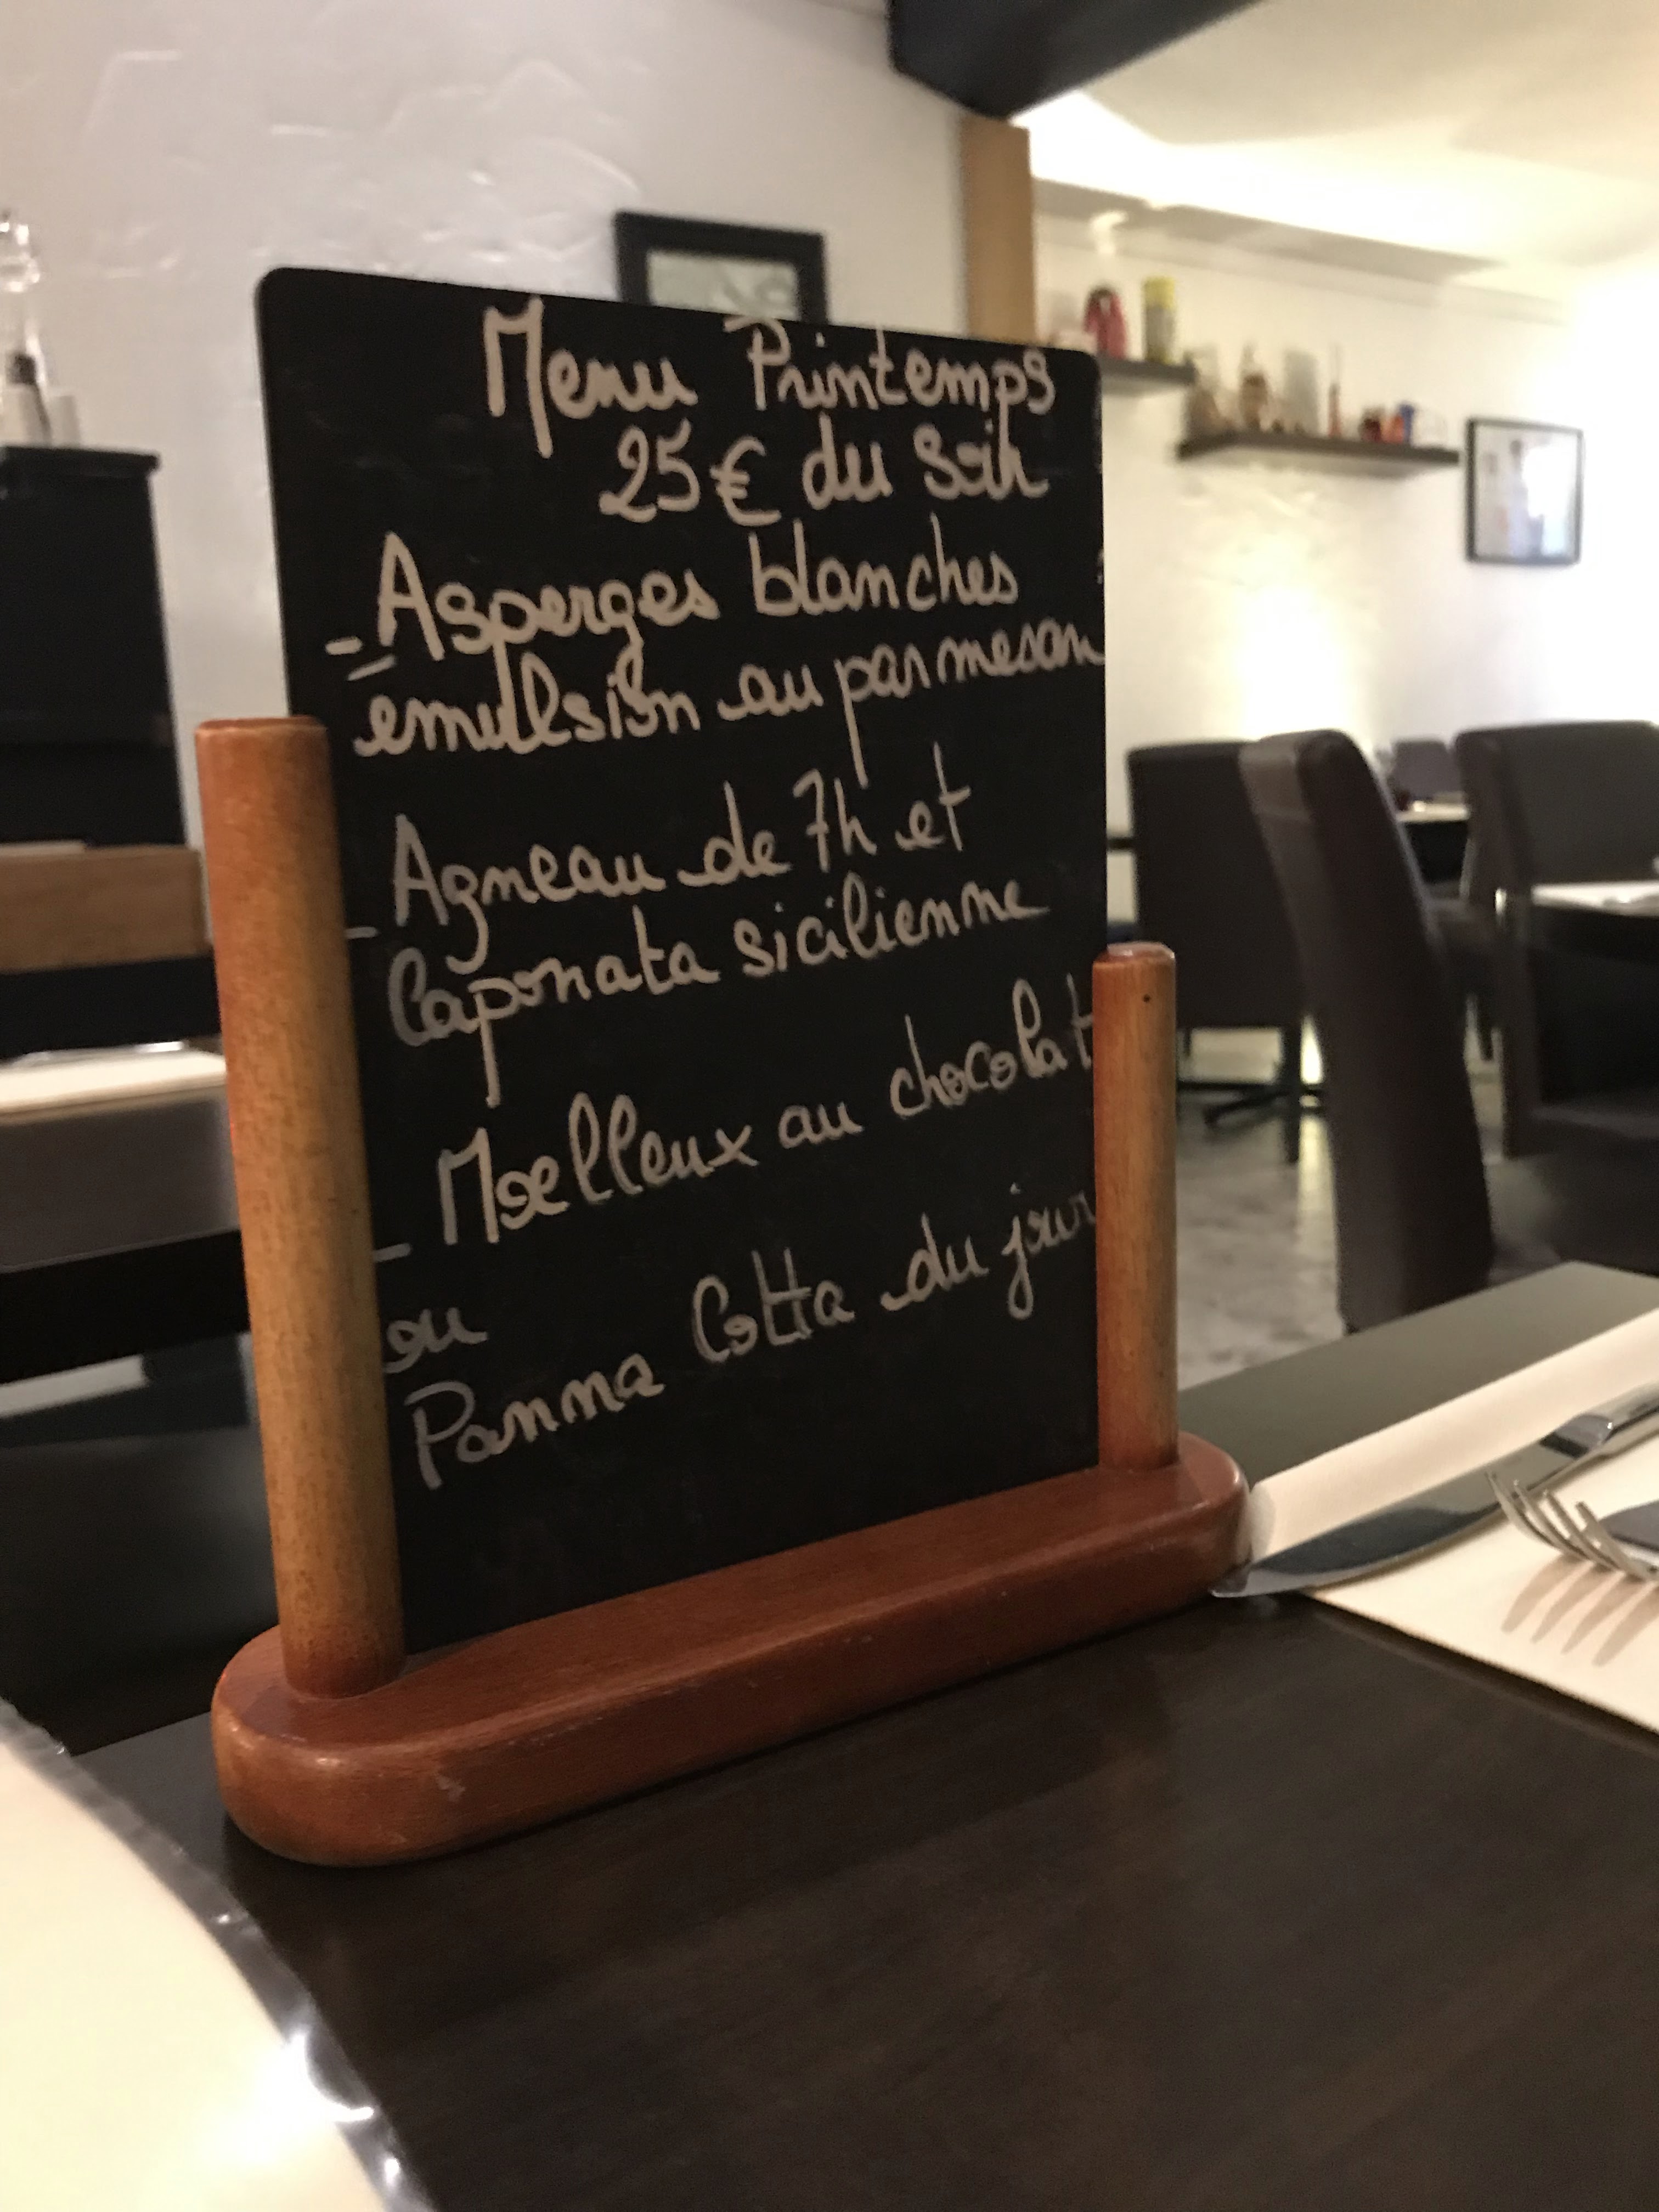 Menu Printemps
25€ du soir
- Asperges blanches
émulsion au parmesan
- Agneau de 7h et
Caponata sicilienne
- Moelleux au chocolat
ou
Panna Cotta du jour